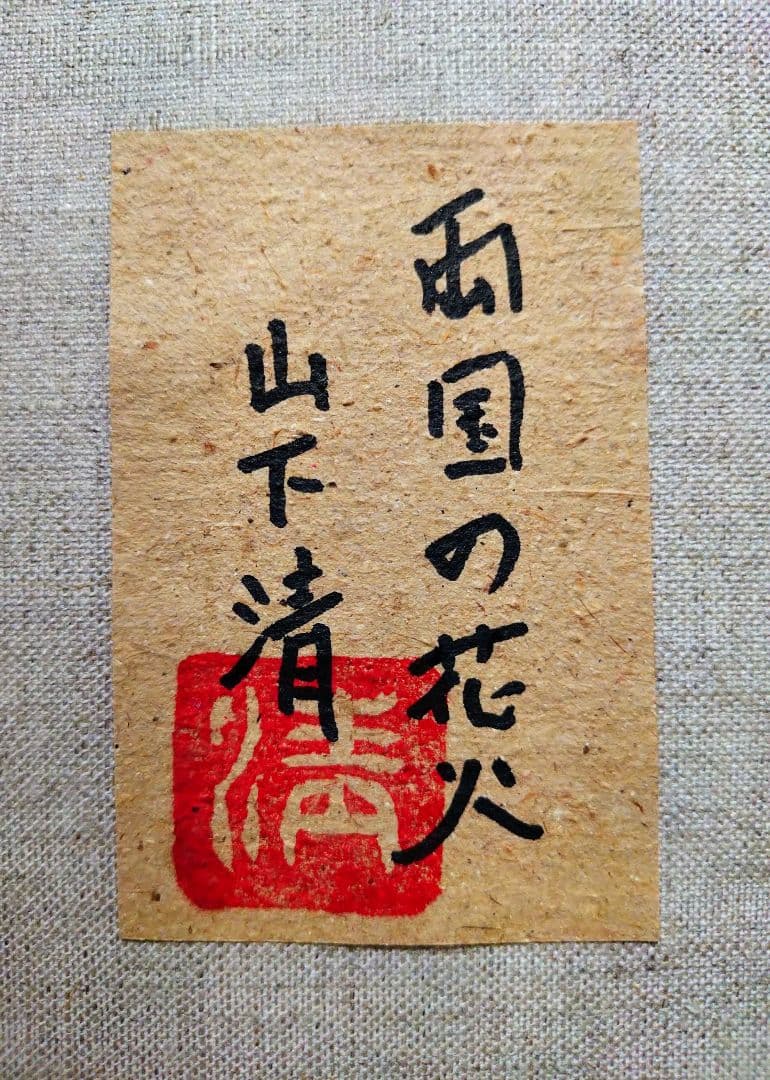 両国の花火
山下清
清